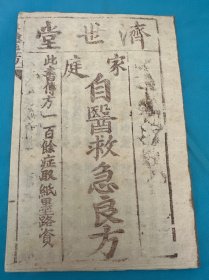 濟世堂
家庭
自醫救急良方
此書傳方一百餘症取紙墨路資